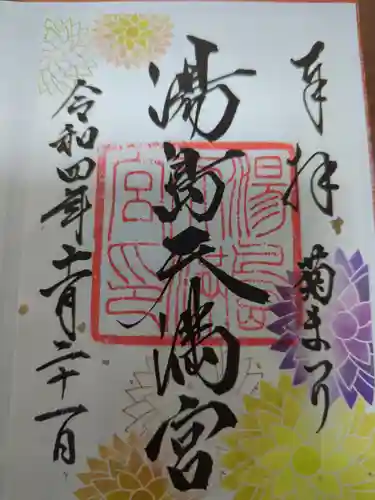 奉拝 菊まつり
湯島天満宮
令和四年十一月二十一日